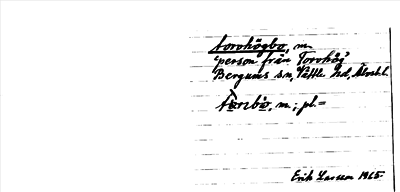 Torohögbo, m.
"person från Torohög"
Bergums sn, Vättle hd, Älvsb.l.
m.; pl. =
Erik Larsson 1965.